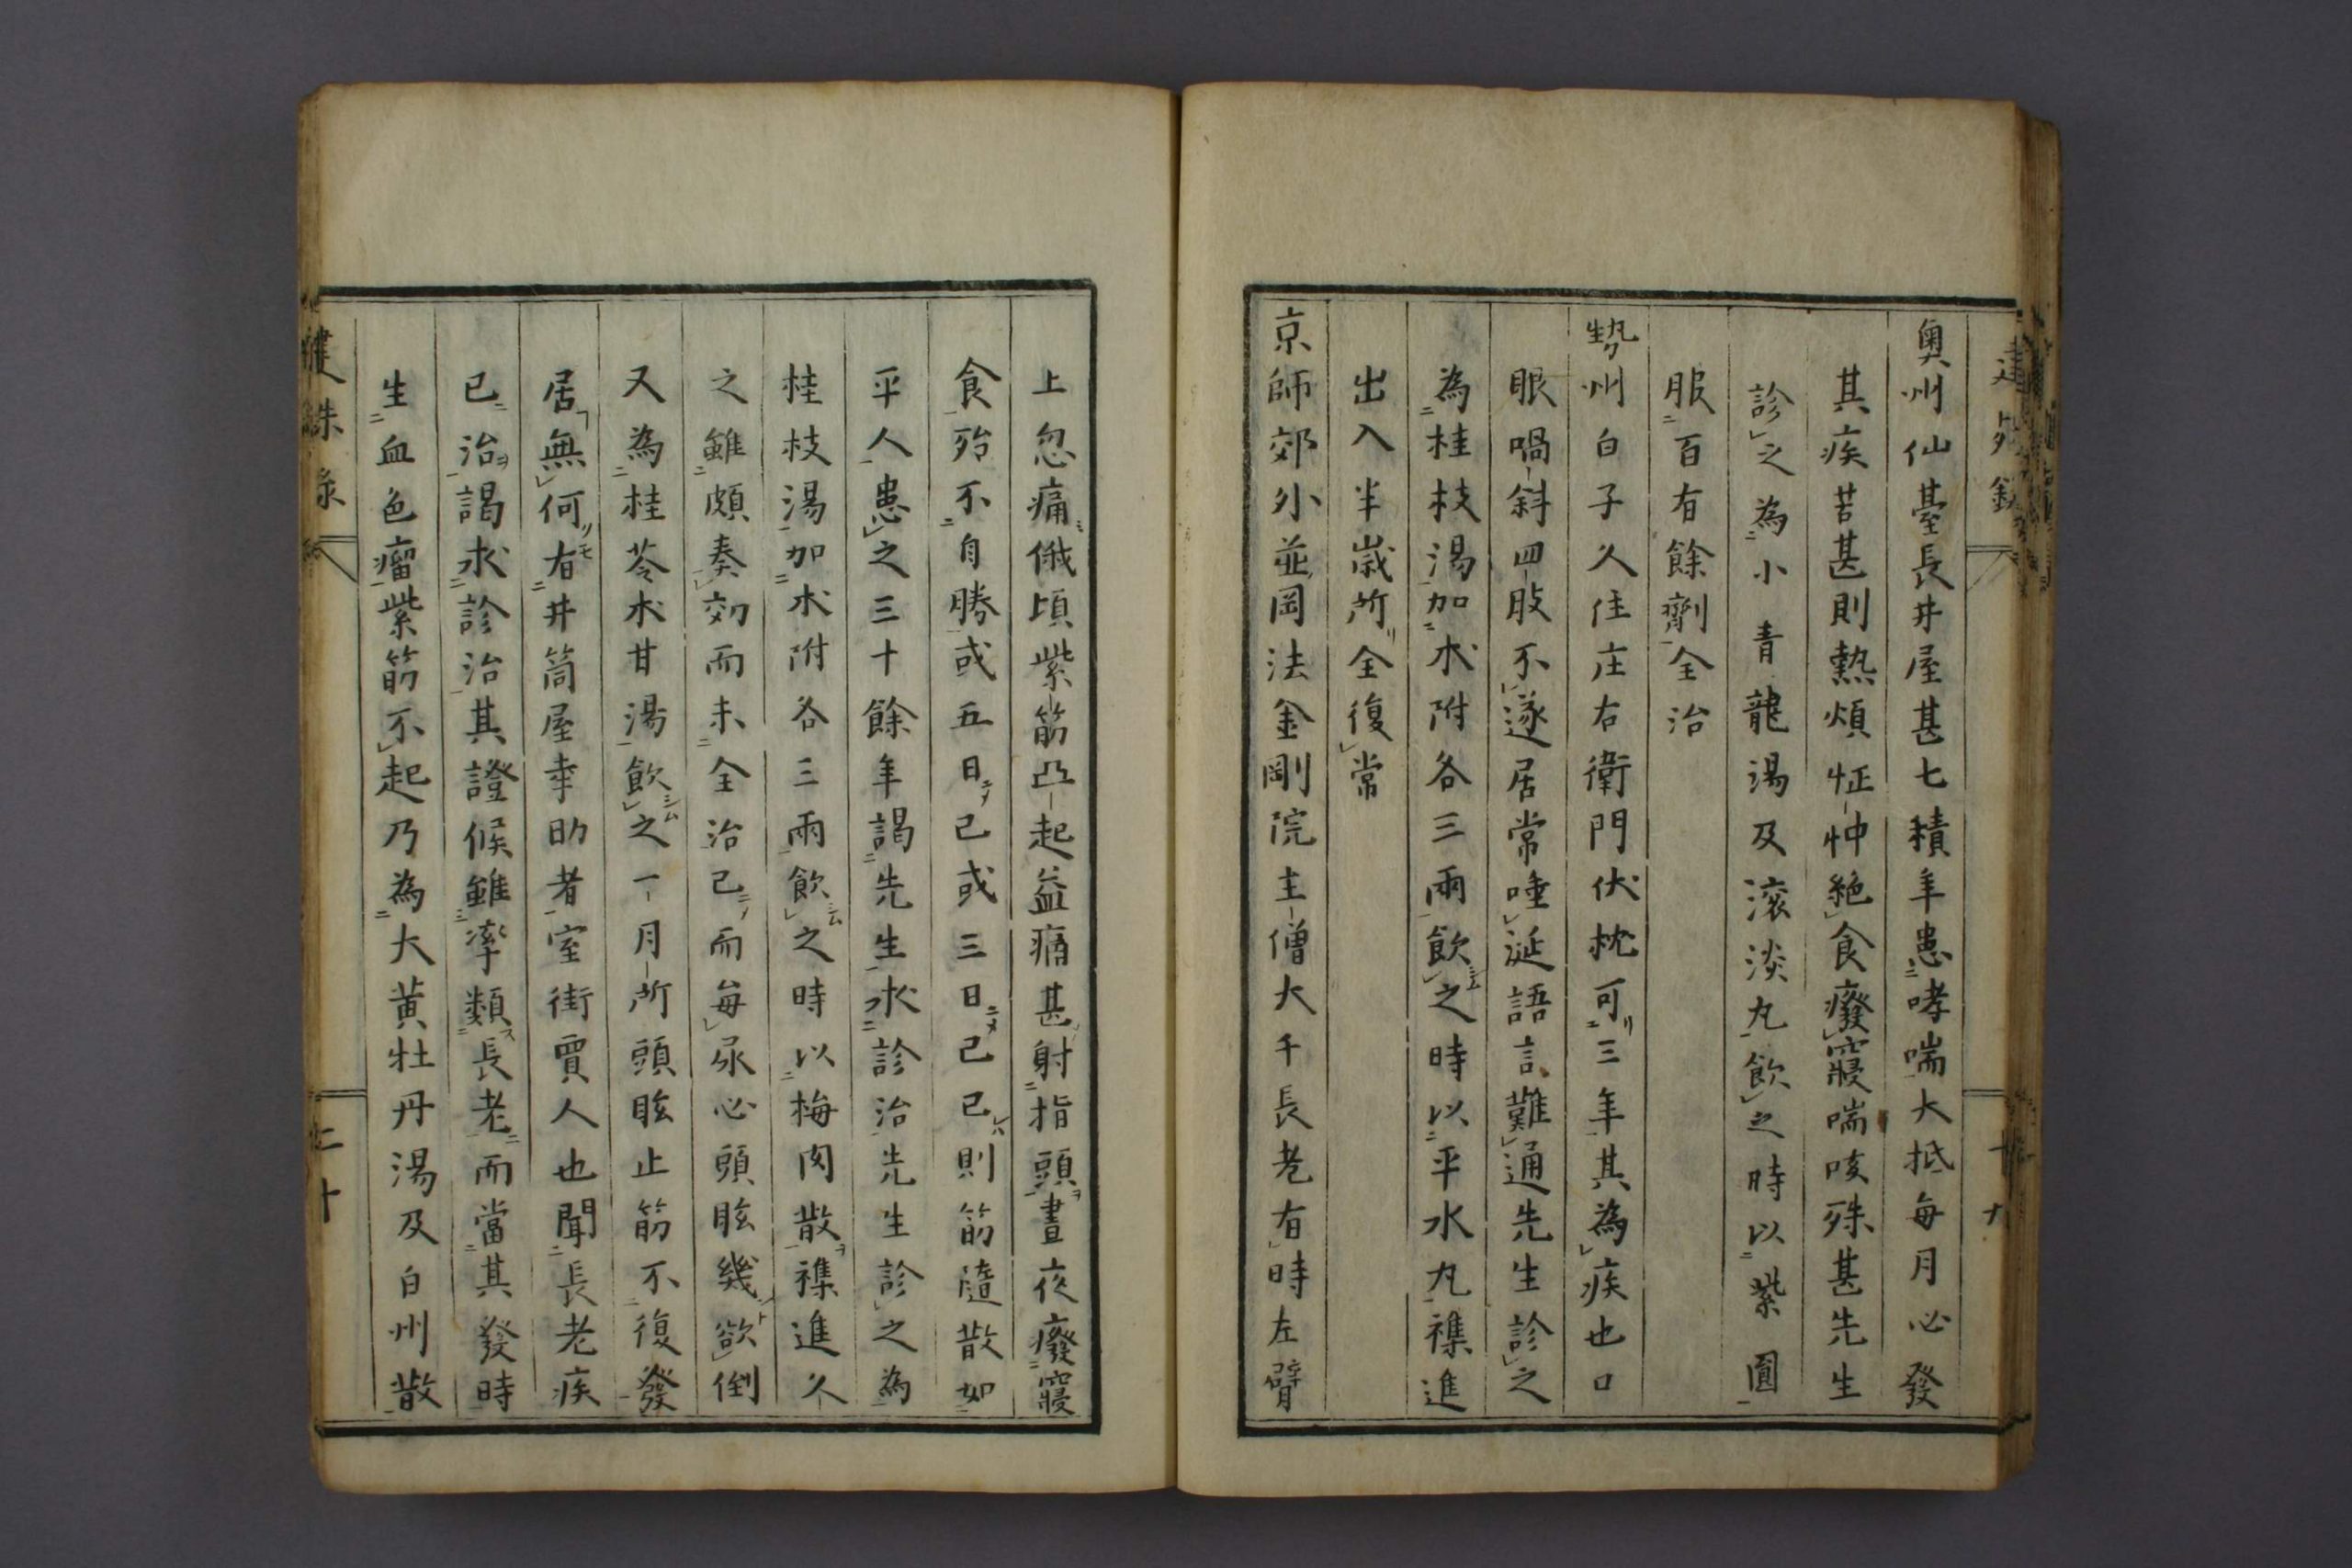 奧州仙臺長井屋甚七積年患哮喘大抵每月必發
其疾苦甚則熱煩怔忡絶食癈寢喘咳殊甚先生
診之為小青龍湯及滚淡丸飲之時以紫圓
服百有餘劑全治
㔟州白子久住庄右衛門伏枕可三年其為疾也口
眼喎斜四肢不遂居常唾涎語言難通先生診之
為桂枝湯加朮附各三兩飲之時以平水丸襍進
出入半歲所全復常
京師郊外並岡法金剛院主僧大千長老有時左臂
上忽痛俄頃紫筋凸起益痛甚射指頭晝夜癈寢
食殆不自勝或五日已或三日已已則筋隨散如
平人患之三十餘年謁先生求診治先生診之為
桂枝湯加朮附各三兩飲之時以梅肉散襍進久
之雖頗奏効而未全治已而每尿必頭眩幾欲倒
又為桂苓朮甘湯飲之一月所頭眩止筋不復發
居無何有井筒屋幸助者室街賈人也聞長老疾
已治謁求診治其證候雖率類長老而當其發時
生血色瘤紫筋不起乃為大黃牡丹湯及白州散